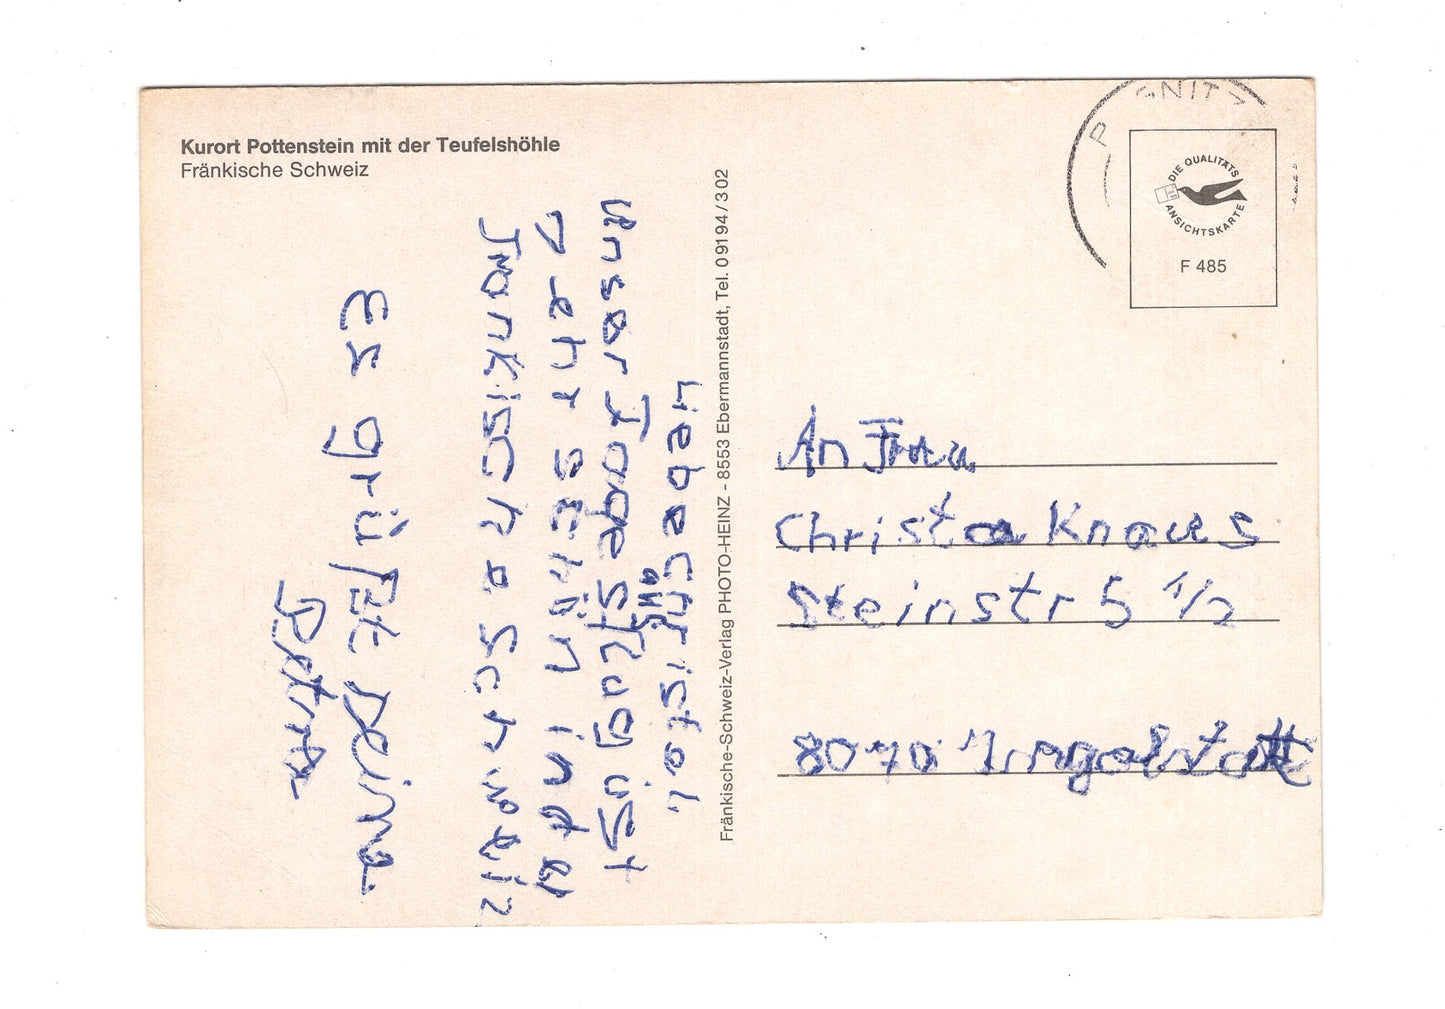 Kurort Pottenstein mit der Teufelshöhle
Fränkische Schweiz
Liebe Christa!
Unser ist
sehr schön in der
Frankische Schweiz
Es grüßt Deine
Petra
Fränkische-Schweiz-Verlag PHOTO-HEINZ - 8553 Ebermannstadt, Tel. 09194/302
DIE QUALITÄTS
ANSICHTSKARTE
F 485
An Frau
Christa Knaus
Steinstr 5 1/2
8070 Ingolstatt